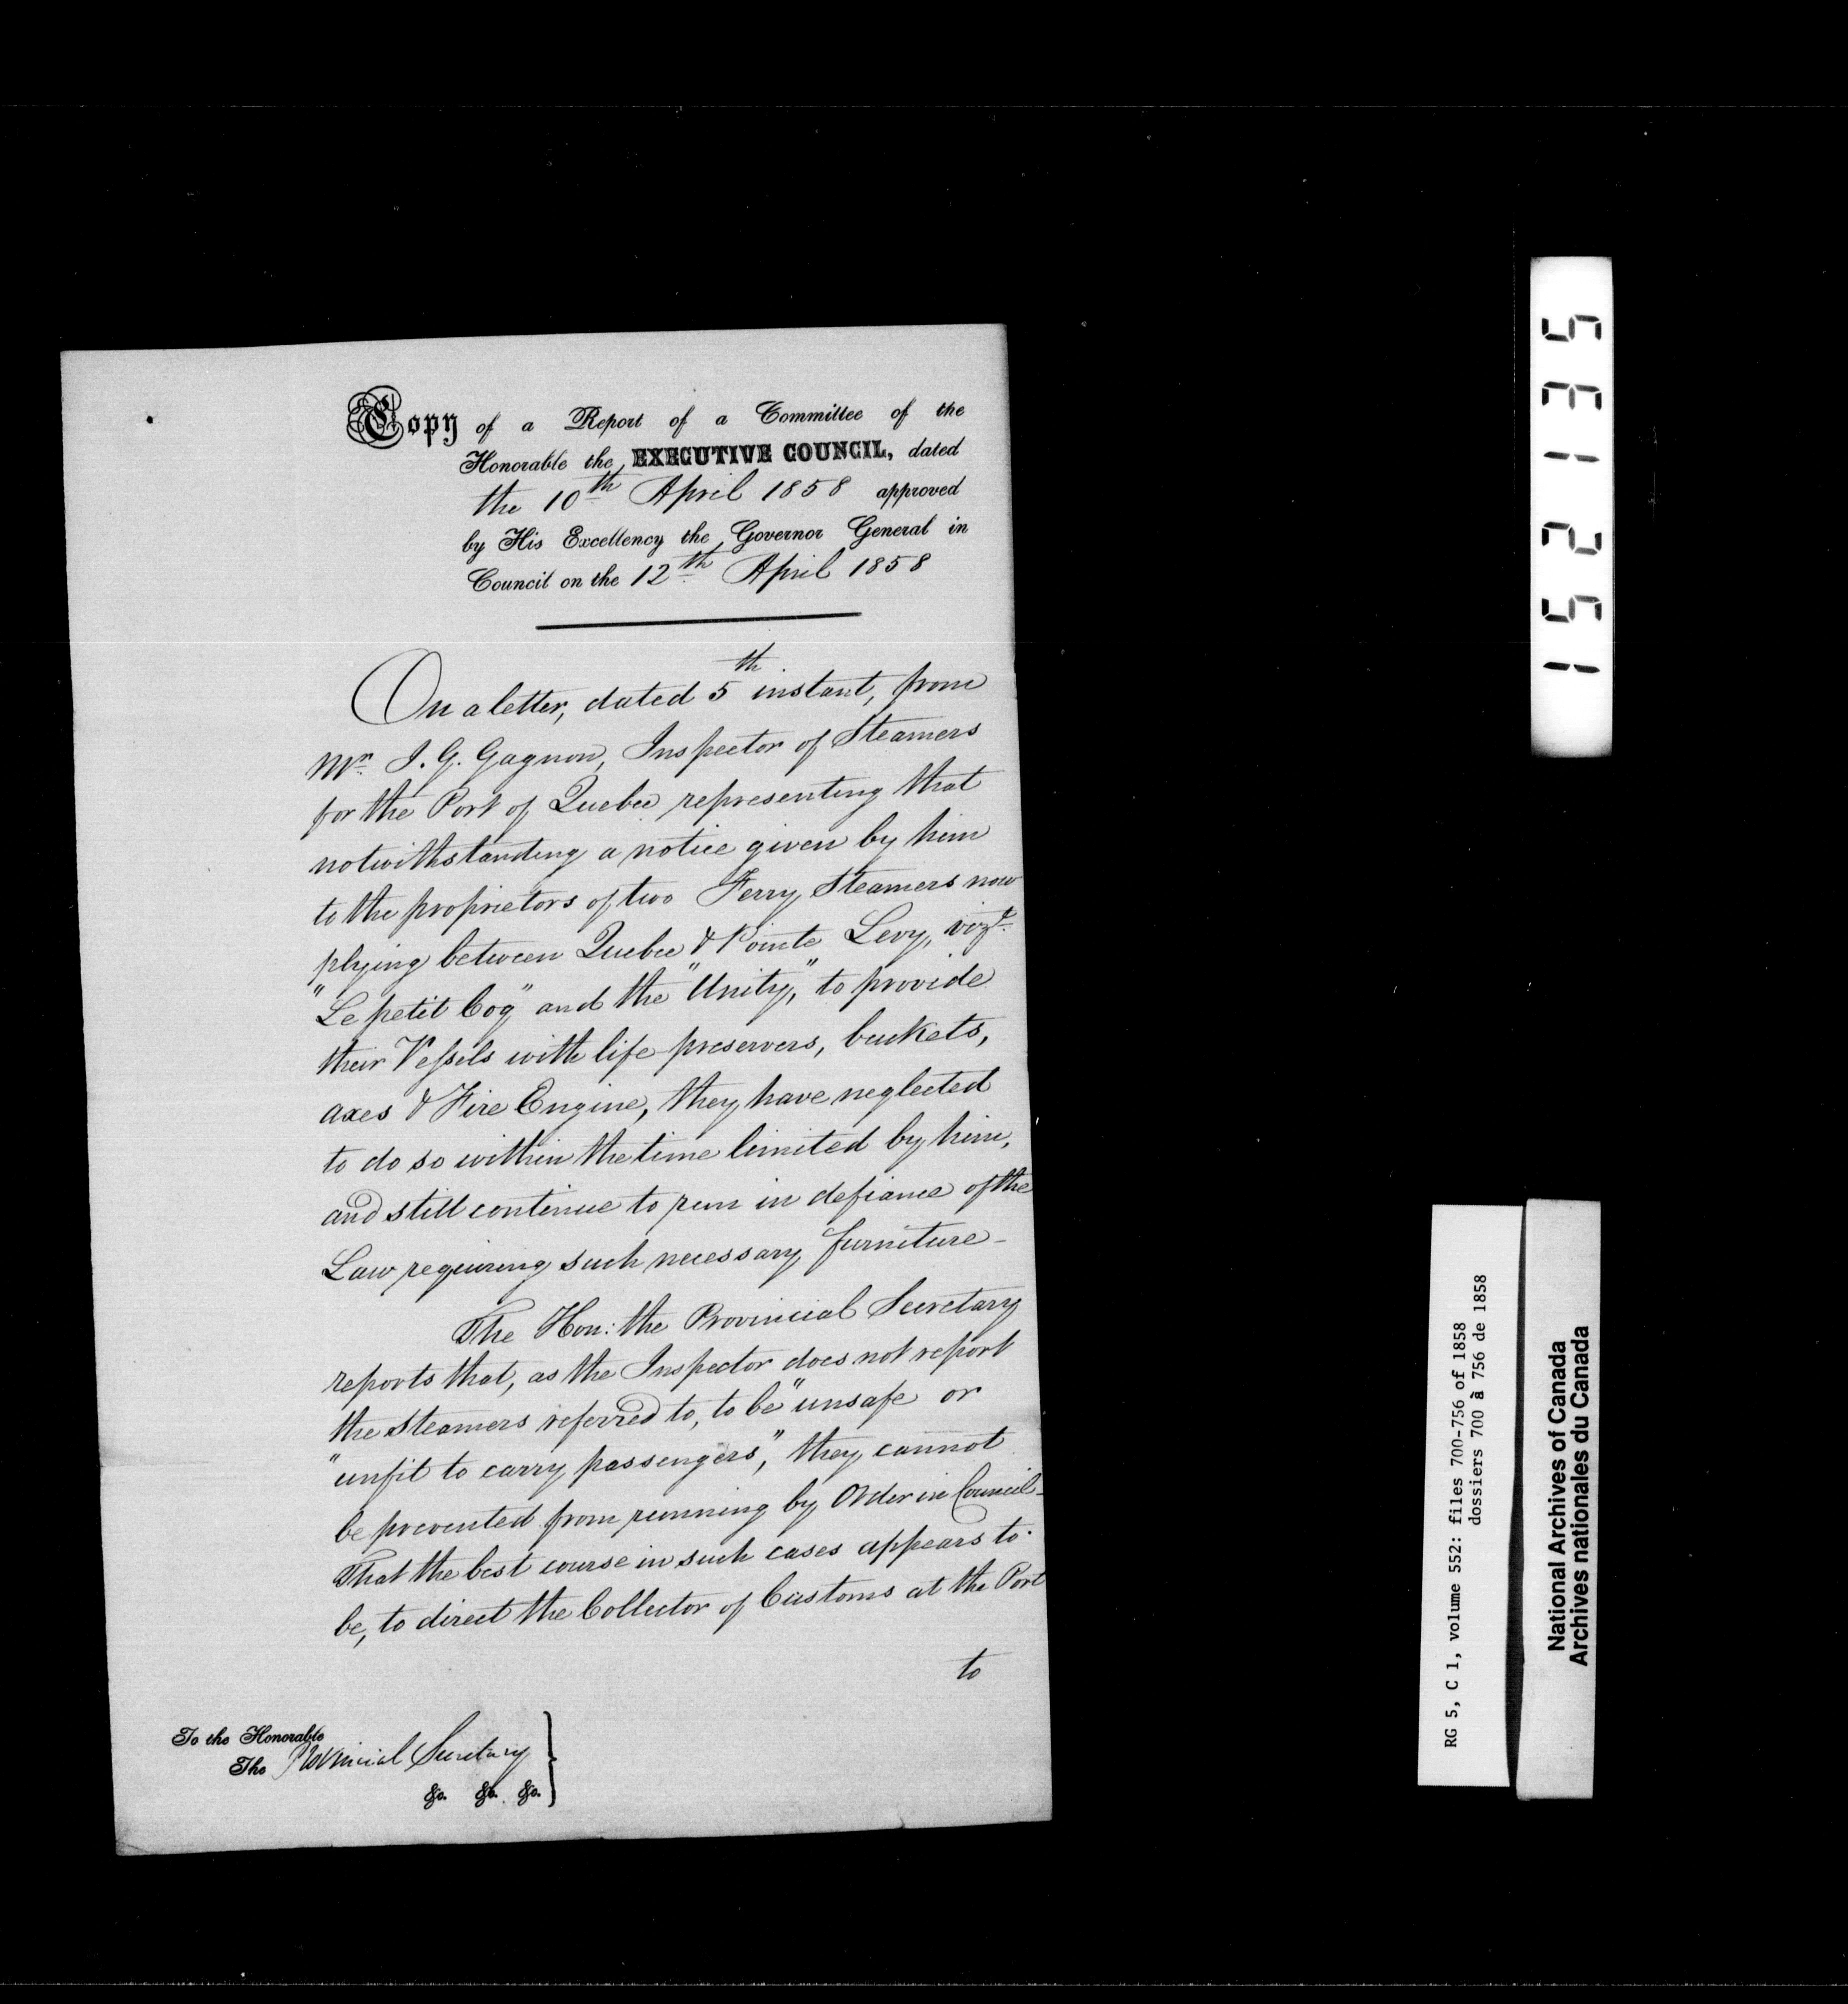 Copy of a Report of a Committee of the
Honorable the EXECUTIVE COUNCIL, dated
the 10th April 1858 approved
by His Excellency the Governor General in
Council on the 12th April 1858
On a letter, dated 5th instant, from
Mr. J. G. Gagnon, Inspector of Steamers
for the Port of Quebec representing that
notwithstanding a notice given by him
to the proprietors of two Ferry Steamers now
plying between Quebec & Pointe Levy, vizt.
"Le petit Coq" and the "Unity," to provide
their Vessels with life preservers, buckets,
axes & Fire Engine, they have neglected
to do so within the time limited by him,
and still continue to run in defiance of the
Law requiring such necessary furniture -
The Hon: the Provincial Secretary
reports that, as the Inspector does not report
the steamers referred to, to be "unsafe or
"unfit to carry passengers," they cannot
be prevented from running by Order in Council -
That the best course in such cases appears to
be, to direct the Collector of Customs at the Port
to
To the Honorable
The Provincial Secretary
&c. &c. &c.
152135
RG 5, C 1, volume 552: files 700-756 of 1858
dossiers 700 à 756 de 1858
National Archives of Canada
Archives nationales du Canada